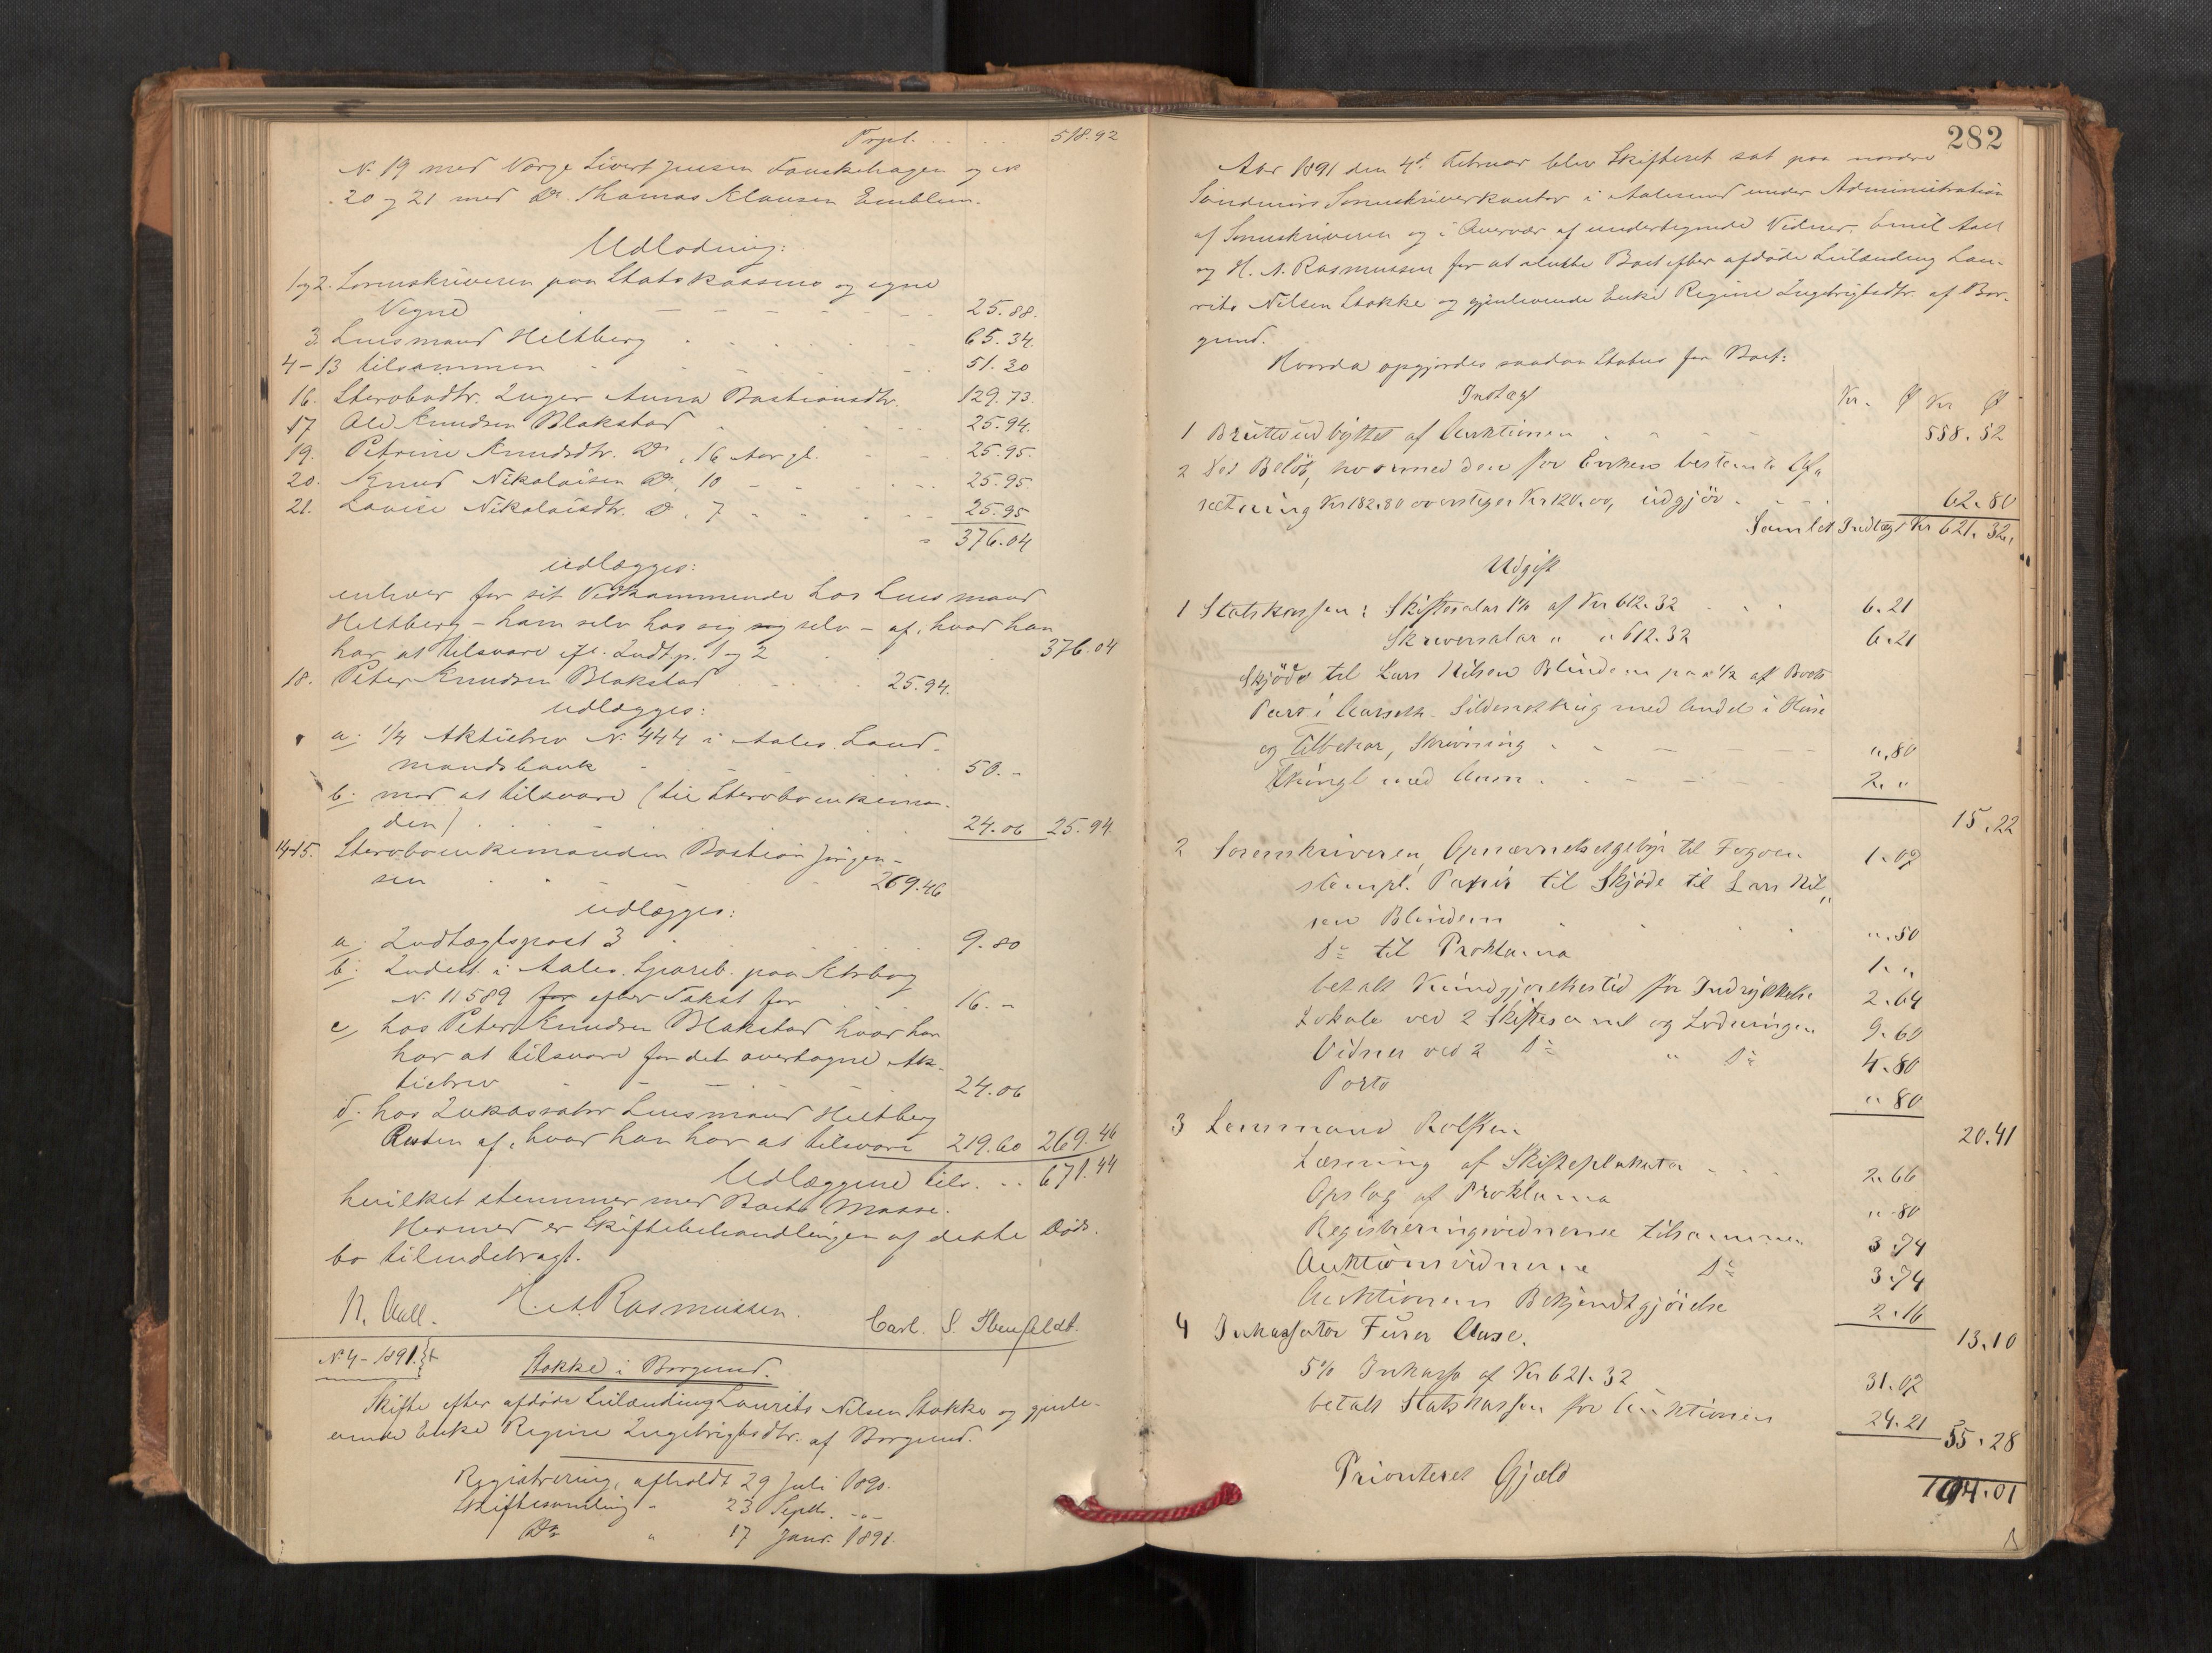 Trpt. . . . . 518.92
N. 19 med Værge Sivert Jensen Fauskehagen og N
20 og 21 med Do. Thomas Klausen Emblem.
Udlodning:
1 og 2. Sorenskriveren paa Statskassens og egne
Vegne 25.88.
3. Lensmand Heltberg 65.34.
4-13 tilsammen 51.20
16. Stervbodtr. Inger Anna Bastiansdtr. 129.73.
17 Ole Knudsen Blakstad 25.94.
19. Petrine Knudsdtr. Do, 16 Aar gl. 25.95.
20. Knud Nikolaisen Do, 10 - 25.95.
21. Lovise Nikolaisdtr. Do, 7 - 25.95
376.04
udlægges:
enhver for sit Vedkommende hos Lensmand
Heltberg - ham selv hos sig sig selv - af, hvad han
har at tilsvare efl. Indt.p. 1 og 2 376.04
18. Peter Knudsen Blakstad 25.94.
udlægges:
a. 1/4 Aktiebrev N. 444 i Aales. Land-
mandsbank 50.-
b. mod at tilsvare (til Stervboenkeman-
den) 24.06 25.94.
14-15. Stervboenkemanden Bastian Jørgen-
sen 269.46
udlægges:
a. Indtægtspost 3 9.80
b. Indest. i Aales. Spareb. paa Ktrbog
N. 11589 for efter Takst for 16.-
c, hos Peter Knudsen Blakstad hvad han
har at tilsvare for det overtagne Ak-
tiebrev 24.06
d. hos Inkassator Lensmand Heltberg
Resten af, hvad han har at tilsvare 219.60 269.46
Udlæggene tils. . . 671.44
hvilket stemmer med Boets Masse.
Hermed er Skiftebehandlingen af dette Døds-
bo tilendebragt.
N. Aall. H. A. Rasmussen. Carl. S.
N. 4 - 1891.
Stokke i Borgund.
Skifte efter afdøde Leilænding Laurits Nilsen Stokke og gjenle-
vende Enke Regine Ingebrigtsdtr. af Borgund.
Registrering, afholdt 29 Juli 1890.
Skiftesamling - 23 Septb. -"-
Do " 17 Janr. 1891.
282
Aar 1891 den 4de Februar blev Skifteret sat paa nordre
Søndmørs Sorenskriverkontor i Aalesund under Administration
af Sorenskriveren og i Overvær af undertegnede Vidner, Emil Aall
og H. A. Rasmussen for at slutte Boet efter afdøde Leilænding Lau-
rits Nilsen Stokke og gjenlevende Enke Regine Ingebrigtsdtr. af Bor-
gund.
Hvorda opgjordes saadan Status for Boet:
Indtægt Kr. Ø Kr Ø
1 Bruttoudbyttet af Auktionen 558.52
2 Det Beløb, hvormed den for Enken bestemte Afs
sætning Kr 182.80 overstiger Kr 120.00, udgjør 62.80
Samlet Indtægt Kr 621.32.
Udgift
1 Statskassen: Skiftesalær 1% af Kr 612.32 6.21
Skriversalær " " 612.32 6.21
Skjøde til Lars Nilsen Blindem paa 1/2 af Boets
Part i Aarseth-Sildenotbrug med Andel i Huse
og Tilbehør, Skrivning ".80
Thingl. med Anm. 2."
15.22
2 Sorenskriveren, Opnævnelsesgebyr til Fogden 1.07
stempl. Papir til Skjøde til Lars Nil"
sen Blindem ".50
Do til Proklama 1."
betalt Kundgjørelsestid. for Indrykkelse 2.64
Lokale ved 2 Skiftesaml og Lodningen 9.60
Vidner ved 2 Do " Do 4.80
Porto ".80
20.41
3 Lensmand Rolfsen
Læsning af Skifteplakater 2.66
Opslag af Proklama ".80
Registreringsvidnerne tilsammen 3.74
Auktionsvidnerne Do 3.74
Auktionens Bekjendtgjørelse 2.16
13.10
4 Inkassator Furer Aase.
5% Inkasso af Kr 621.32 31.07
betalt Statskassen for Auktionen 24.21 55.28
Prioriteret Gjæld 104.01